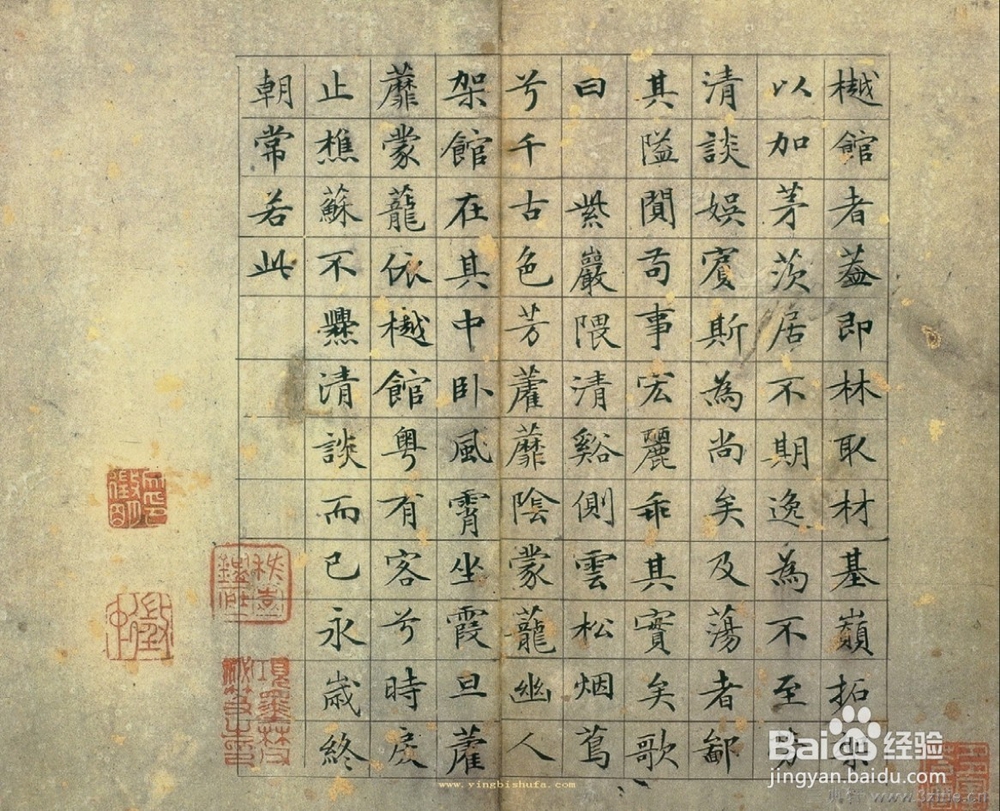 樾館者蓋即林取材基巔拓架
以加茅茨居不期逸為不至勞
清談娛賓斯為尚矣及蕩者鄙
其隘閴苟事宏麗乖其實矣歌
曰 紫巖隈清谿側雲松烟蔦
兮千古色芳藋蘼陰蒙蘢幽人
架館在其中卧風霄坐霞旦藋
蘼蒙蘢依樾館粤有客兮時戾
止樵蘇不爨清談而已永歲終
朝常若此
徵明
项墨林
Baidu经验
jingyan.baidu.com
www.yingbishufa.com